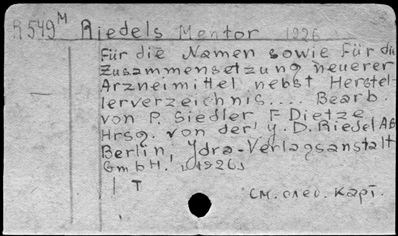 R 549 M Riedels Mentor 1926
Für die Namen sowie für die
Zusammensetzung neuerer
Arzneimittel nebst Herstel-
lerverzeichnis.... Bearb.
von P. Siedler, F Dietze
Hrsg. von der J. D. Riedel AG
Berlin, Ydra-Verlagsanstalt
GmbH. [1926]
T
см. след. карт.